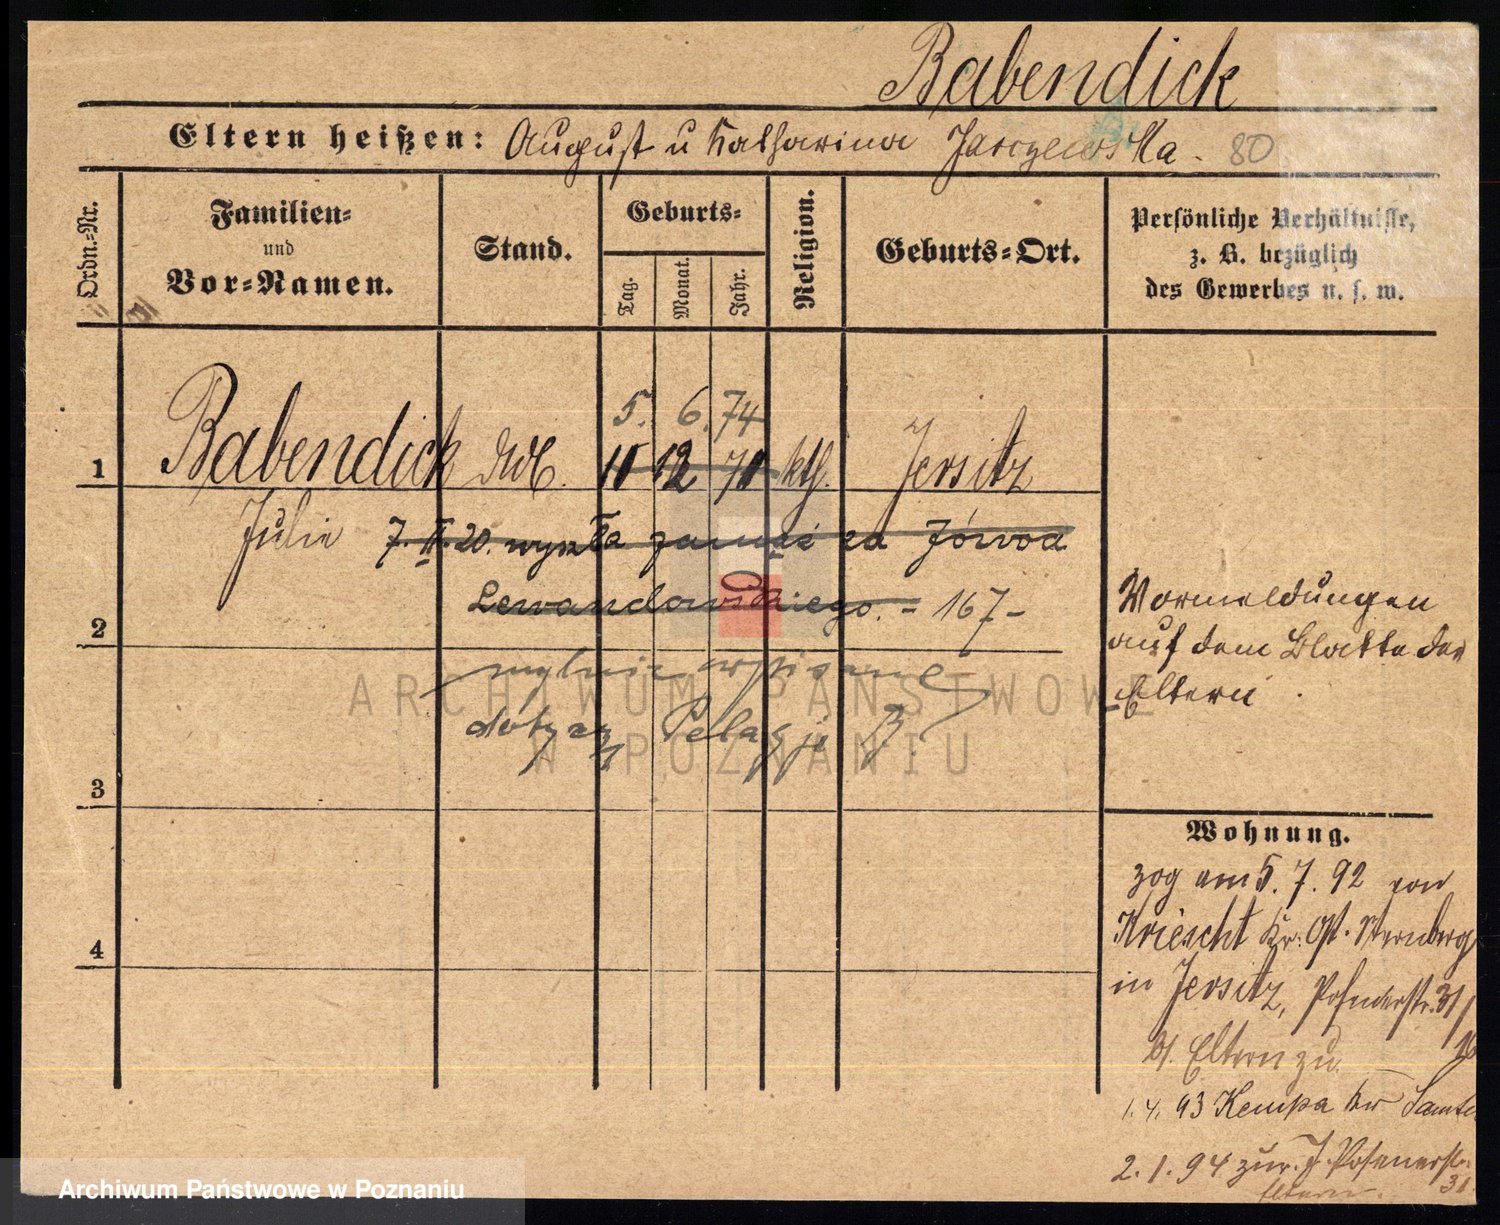 Babendick
Eltern heißen: August u Katharina Jarczewska. 80
Ordn.-Nr.
Familien-
und
Vor-Namen.
Stand.
Geburts-
Tag.
Monat.
Jahr.
Religion.
Geburts-Ort.
Persönliche Verhältnisse,
z. B. bezüglich
des Gewerbes u. s. w.
5. 6. 74
1 Babendick 12 kth. Jersitz
Julie 7. II. 20. wyszła zamąż za Józwoa
Lewandowskiego. - 167-
2
mylnie wpisane
dotyczy Pelagji B.
3
4
Vormeldungen
auf dem Blatte der
Eltern
Wohnung.
zog am 5. 7. 92 von
Kriescht Kr. Ost. Sternberg
in Jersitz, Posenerstr. 31
b/. Eltern zu.
1. 4. 93 Kempa Kr
2. 1. 94 zur. J. Posenerstr.
31
Eltern.
ARCHIWUM PAŃSTWOWE
W POZNANIU
Archiwum Państwowe w Poznaniu